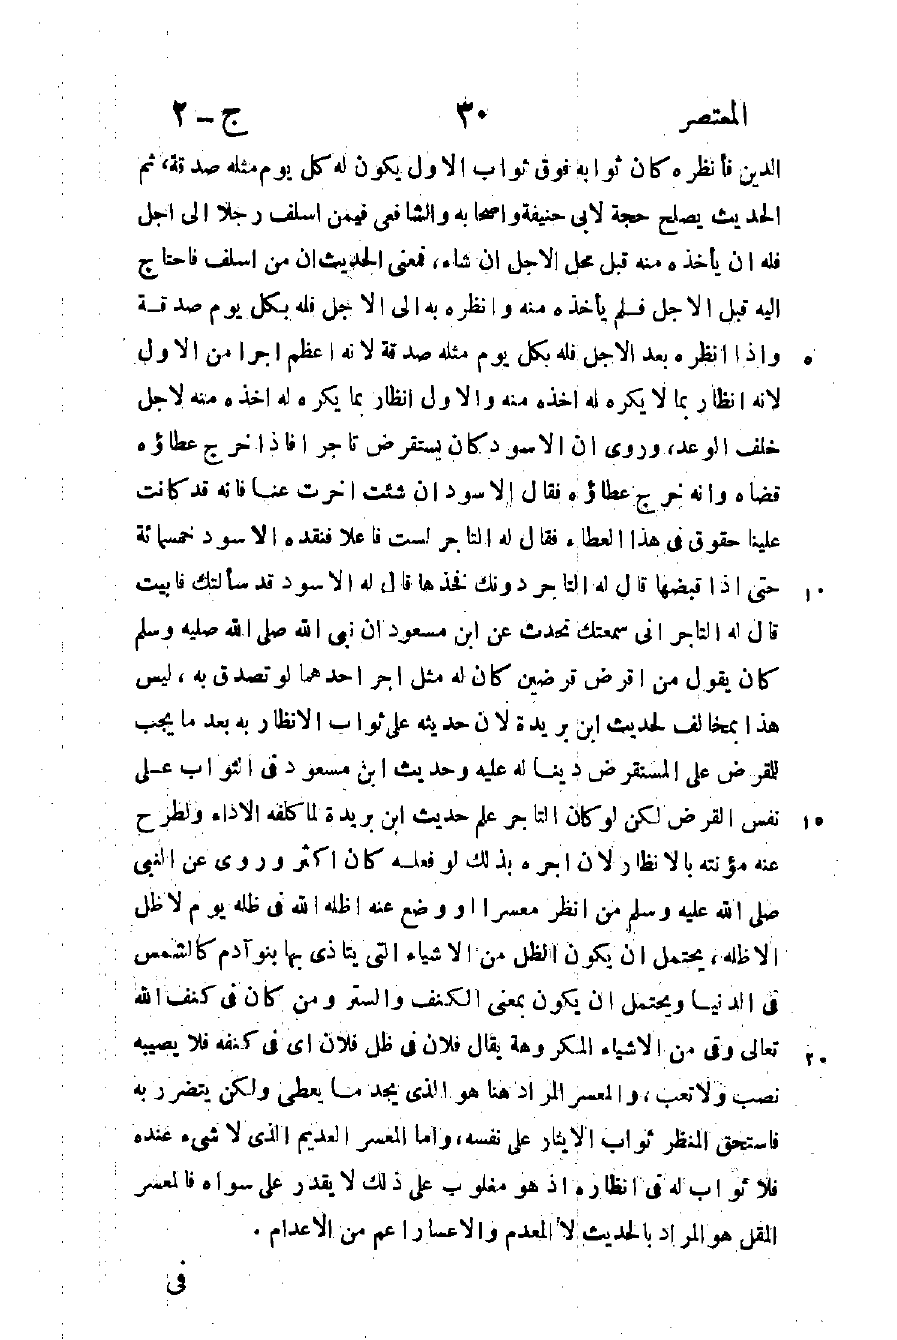 المعتصر ٣٠ ج-٢
الدين فأنظره كان ثوابه فوق ثواب الاول يكون له كل يوم مثله صدقة، ثم
الحديث يصلح حجة لابى حنيفة واصحابه والشافعى فيمن اسلف رجلا الى اجل
فله ان يأخذه منه قبل محل الاجل ان شاء، فمعنى الحديث ان من اسلف فاحتاج
اليه قبل الاجل فلم يأخذه منه وانظره به الى الاجل فله بكل يوم صدقة
٥ واذا انظره بعد الاجل فله بكل يوم مثله صدقة لانه اعظم اجرا من الاول
لانه انظار بما لا يكره له اخذه منه والاول انظار بما يكره له اخذه منه لاجل
خلف الوعد، وروى ان الاسود كان يستقرض تاجرا فاذا خرج عطاؤه
قضاه وانه خرج عطاؤه فقال الاسود ان شئت اخرت عنا فانه قد كانت
علينا حقوق فى هذا العطاء فقال له التاجر لست فاعلا فنقده الاسود خمسمائة
١٠ حتى اذا قبضها قال له التاجر دونك فخذها قال له الاسود قد سألتك فابيت
قال له التاجر انى سمعتك تحدث عن ابن مسعود ان نبى الله صلى الله صليه وسلم
كان يقول من اقرض قرضين كان له مثل اجر احدهما لو تصدق به، ليس
هذا بمخالف لحديث ابن بريدة لان حديثه على ثواب الانظار به بعد ما يجب
للقرض على المستقرض دينا له عليه وحديث ابن مسعود فى الثواب على
١٥ نفس القرض لكن لو كان التاجر علم حديث ابن بريدة لما كلفه الاداء ولطرح
عنه مؤنته بالانظار لان اجره بذلك لو فعله كان اكثر وروى عن النبى
صلى الله عليه وسلم من انظر معسرا او وضع عنه اظله الله فى ظله يوم لا ظل
الا ظله، يحتمل ان يكون الظل من الاشياء التى يتاذى بها بنو آدم كالشمس
فى الدنيا ويحتمل ان يكون بمعنى الكنف والستر ومن كان فى كنف الله
٢٠ تعالى وقى من الاشياء المكروهة يقال فلان فى ظل فلان اى فى كنفه فلا يصيبه
نصب ولا تعب، والمعسر المراد هنا هو الذى يجد ما يعطى ولكن يتضرر به
فاستحق المنظر ثواب الايثار على نفسه، واما المعسر العديم الذى لا شىء عنده
فلا ثواب له فى انظاره اذ هو مغلوب على ذلك لا يقدر على سواه فالمعسر
المقل هو المراد بالحديث لا المعدم والاعسار اعم من الاعدام .
فى